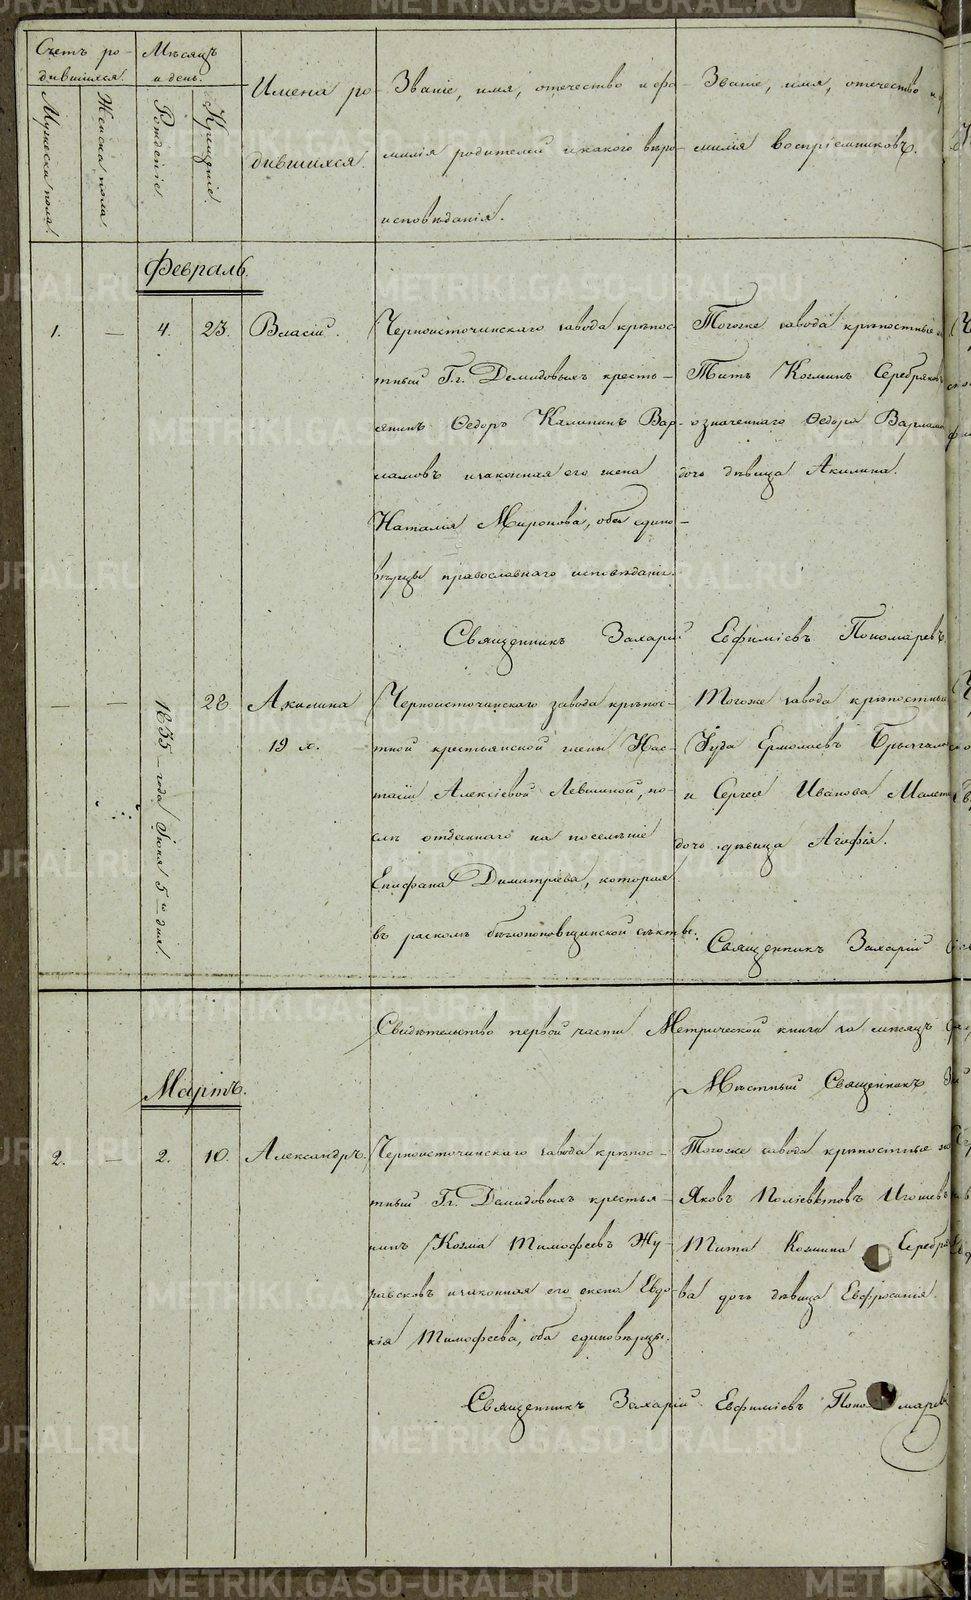 Счетъ ро-
дившихся.
Мужеска пола.
Женска пола.
Мѣсяцъ
и день.
Рожденіе.
Крещеніе.
Имена ро-
дившихся.
Званіе, имя, отечество и фа-
милія родителей и какого вѣро-
исповѣданія.
Званіе, имя, отечество и
милія воспріемниковъ.
Февраль.
1.
—
4.
23.
Власій.
Черноисточинскаго завода крѣпос-
тный Гг. Демидовыхъ кресть-
янинъ Ѳедоръ Калининъ Вар-
ламовъ и законная его жена
Наталія Миронова, оба едино-
вѣрцы православнаго исповѣданія.
Тогоже завода крѣпостные
Титъ Козминъ Серебряковъ
означеннаго Ѳедора Варлам
дочь дѣвица Акилина.
Священникъ Захарій Евфиміевъ Пономаревъ
—
—
1835 года Іюня 5го дня.
28
Акилина
19 л.
Черноисточинскаго завода крѣпос-
тной крестьянской жены Нас-
тасіи Алексіевой Левшиной, по-
слѣ отданнаго на поселѣніе
Епифана Димитріева, которая
въ расколѣ бѣглопоповщинской сѣкты.
Тогоже завода крѣпостные
Іуда Ермолаевъ
и Сергея Иванова
дочь дѣвица Агафія.
Священникъ Захарій
Свидѣтельство первой части Метрической книги за мѣсяцъ
Мѣстный Священникъ
Мартъ.
2.
—
2.
10.
Александръ.
Черноисточинскаго завода крѣпос-
тный Гг. Демидовыхъ крестья-
нинъ Козма Тимофеевъ Жу-
равсковъ и законная его жена Евдо-
кія Тимофеева, оба единовѣрцы.
Тогоже завода крѣпостные
Яковъ Поліевктовъ Игошевъ
Тита Козмина Серебр
ва дочь дѣвица Евфросинія.
Священникъ Захарій Евфиміевъ Пономаревъ
METRIKI.GASO-URAL.RU